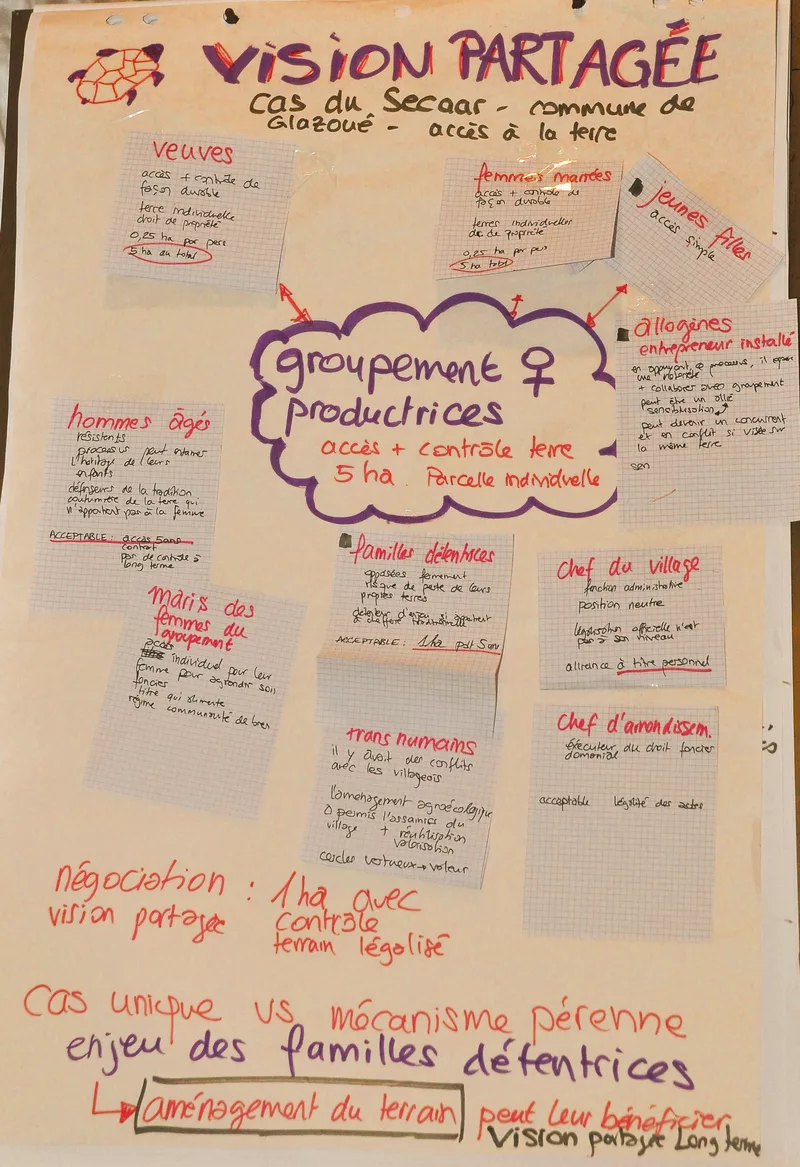 VISION PARTAGÉE
Cas du Secaar - commune de
Glazoué - accès à la terre
veuves
accès + contrôle de
façon durable
terre individuelle
droit de propriété
0,25 ha par pers
5 ha au total
femmes mariées
accès + contrôle de
façon durable
terres individuelles
de propriété
0,25 ha par pers
5 ha total
jeunes filles
accès simple
allogènes
entrepreneur installé
en appuyant processus, il
une notoriété
+ collaborer avec groupement
peut être un allié
sensibilisation
peut devenir un concurrent
et en conflit si visée sur
la même terre
son
groupement ♀
productrices
accès + contrôle terre
5 ha. Parcelle individuelle
hommes âgés
résistants
processus peut entamer
l'héritage de leurs
enfants
défenseurs de la tradition
coutumière de la terre qui
n'appartient pas à la femme
ACCEPTABLE : accès 5ans
contrat
pas de contrôle à
long terme
familles détentrices
opposées fermement
risque de perte de leurs
propres terres
si appartient
à chefferie traditionnelle
ACCEPTABLE : 1ha pdt 5 ans
chef du village
fonction administrative
position neutre
légalisation officielle n'est
pas à son niveau
alliance à titre personnel
maris des
femmes du
groupement
accès
individuel pour leur
femme pour agrandir son
foncier
titre qui alimente
régime communauté de bien
transhumains
il y avait des conflits
avec les villageois
l'aménagement agroécologique
a permis l'assainiss du
village + réutilisation
valorisation
cercles vertueux → valeur
chef d'arrondissem.
exécuteur du droit foncier
domanial
acceptable légalité des actes
négociation : 1ha avec
vision partagée contrôle
terrain légalisé
cas unique vs mécanisme pérenne
enjeu des familles détentrices
↳ aménagement du terrain peut leur bénéficier
Vision partagée Long terme